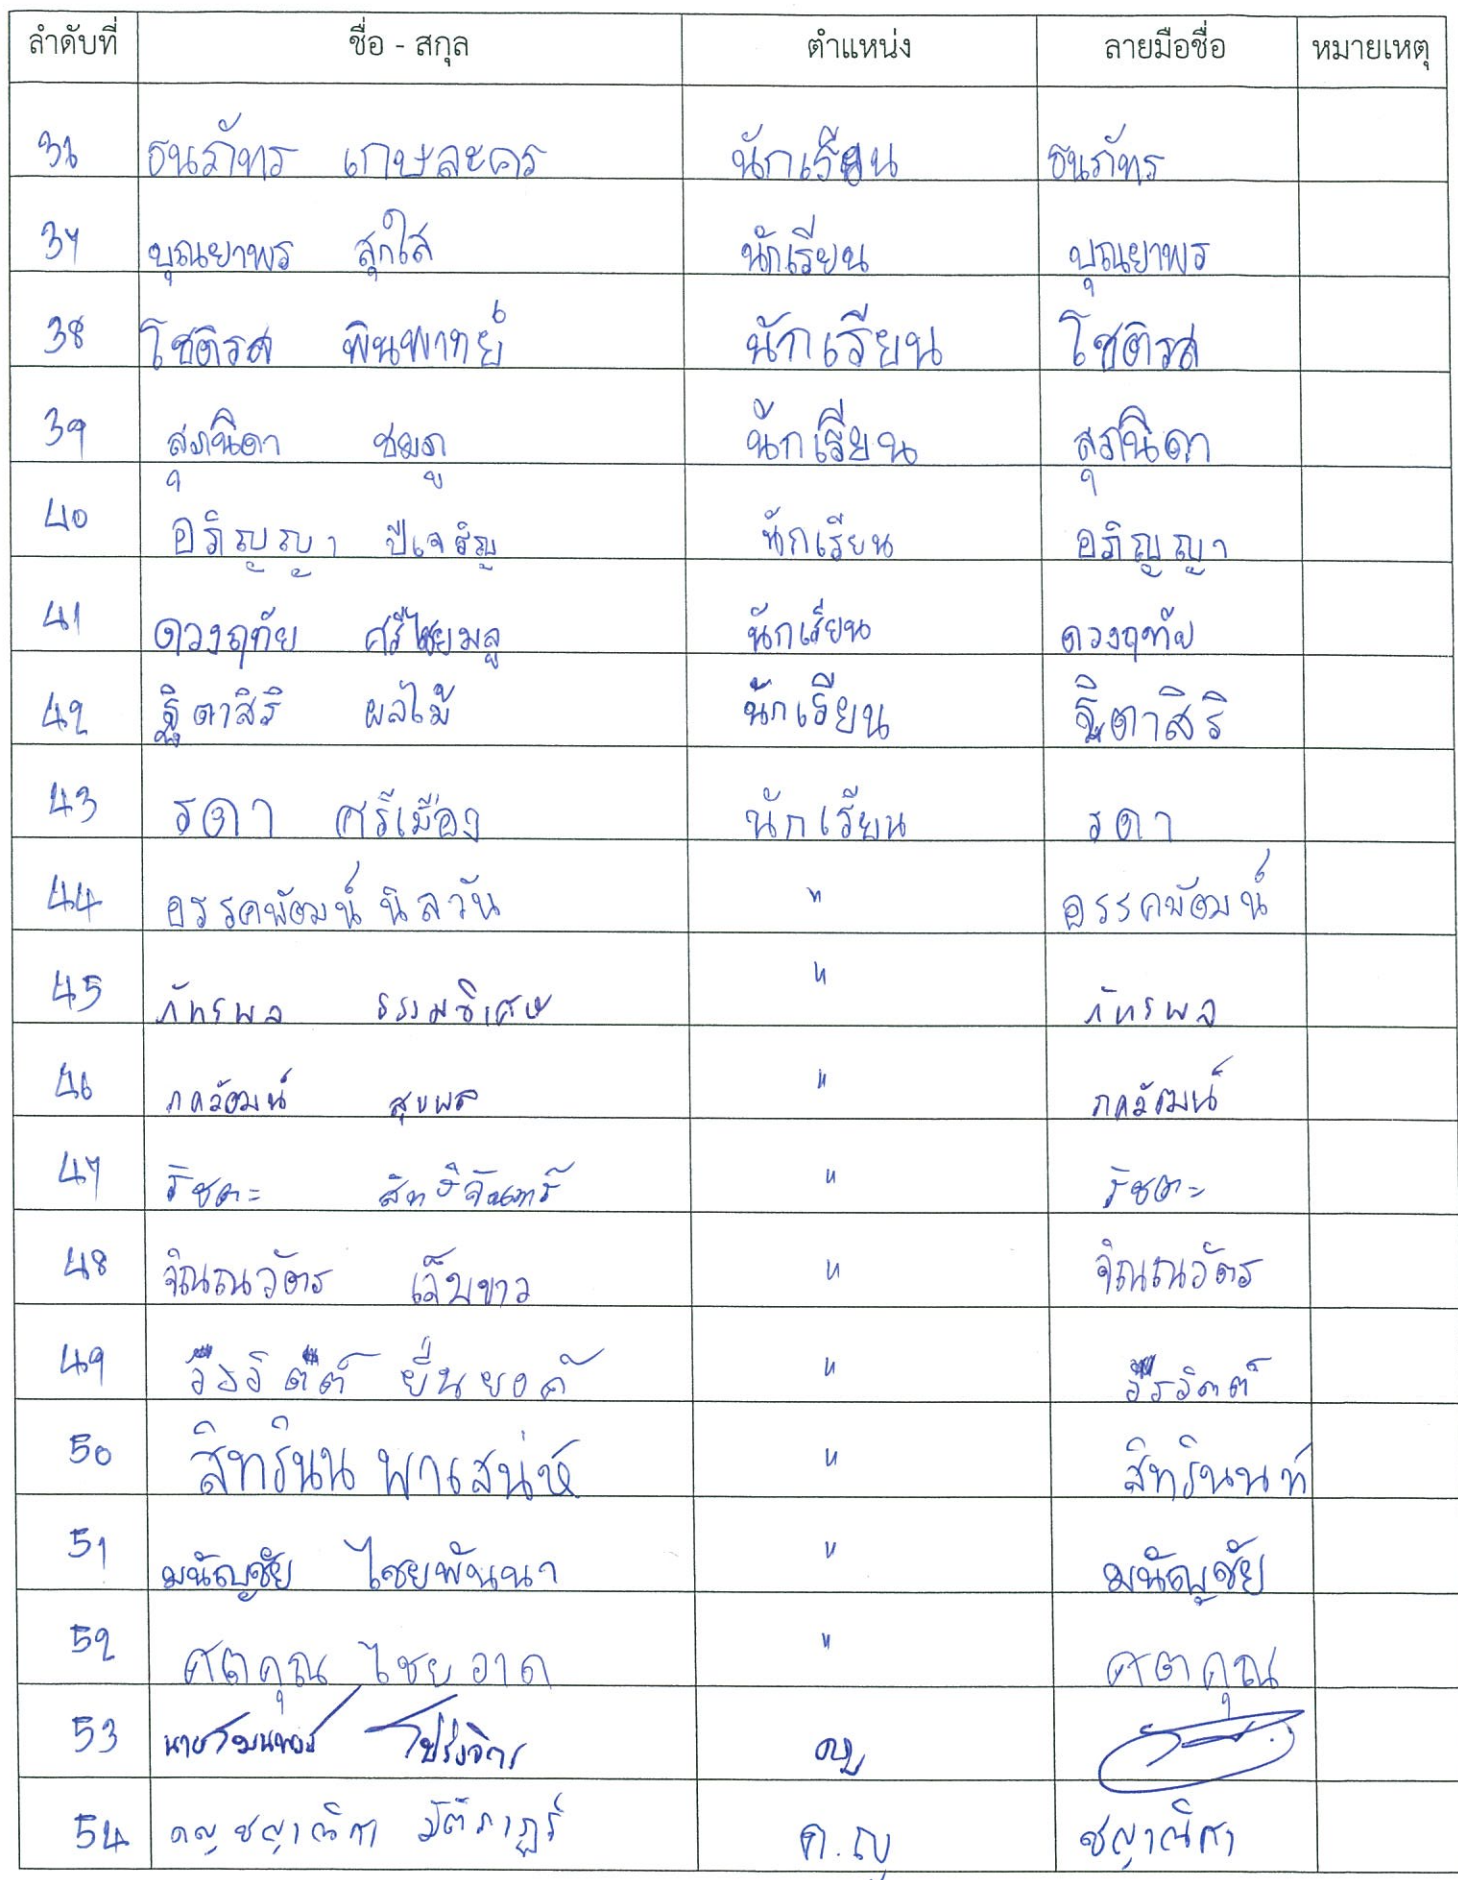 ลำดับที่ ชื่อ - สกุล ตำแหน่ง ลายมือชื่อ หมายเหตุ
36 ธนภัทร เกษละคร นักเรียน ธนภัทร
37 บุณยาพร สุกใส นักเรียน บุณยาพร
38 โชติรส พินพาทย์ นักเรียน โชติรส
39 สุภนิดา ชมภู นักเรียน สุภนิดา
40 อภิญญา ปีเจริญ นักเรียน อภิญญา
41 ดวงฤทัย ศรีไชยมูล นักเรียน ดวงฤทัย
42 ฐิตาสิริ ผลไม้ นักเรียน ฐิตาสิริ
43 รดา ศรีเมือง นักเรียน รดา
44 อรรคพัฒน์ นิลวัน " อรรคพัฒน์
45 ภัทรพล ธรรมวิเศษ " ภัทรพล
46 ภควัฒน์ สุขผล " ภควัฒน์
47 รัชตะ สิทธิจันทร์ " รัชตะ
48 จิณณวัตร เล็บขาว " จิณณวัตร
49 " 
50 สิทรินน พาเสน่ห์ " สิทรินนท์
51 มนัญชัย ไชยพันนา " มนัญชัย
52 ศตคุณ ไชยอาด " ศตคุณ
53
54 ดญ ชญาณิศา ด.ญ ชญาณิศา